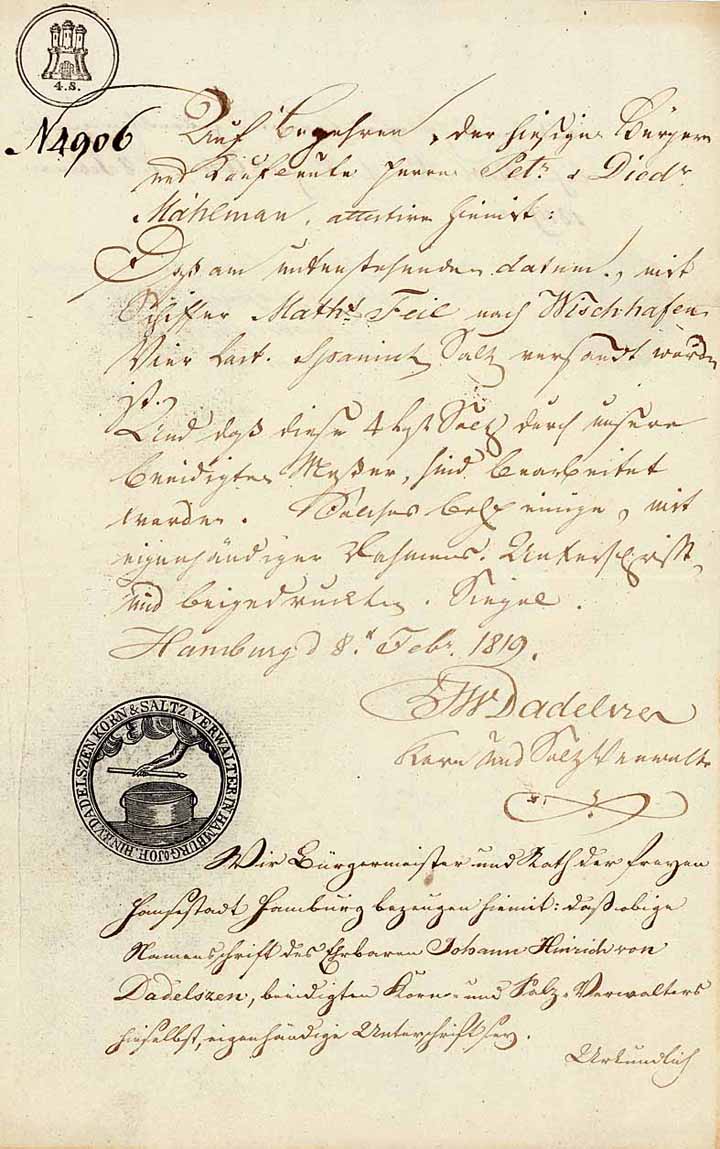 4.S.
N 4906
Auf Begehren, der hiesigen Bürger
und Kaufleute Herren Petr. & Diedr.
Mählman, attestire hiemit:
Daß am untenstehenden datum, mit
Schiffer Maths Feil nach Wischhafen
Vier Last. Spanisch Salz versandt worden
ist.
Und daß diese 4 Last Salz durch unsere
beeidigten Meßer, sind bearbeitet
worden. Solches bescheinige, mit
eigenhändiger Nahmens. Unterschrift,
und beigedruckten. Siegel.
Hamburg d 8t Febr. 1819.
Dadelszen
Korn und Salz Verwalter
JOH. HIN. V. DADELSZEN KORN & SALTZ VERWALTER IN HAMBURG
Wir Bürgermeister und Rath der freyen
Hansestadt Hamburg bezeugen hiemit: daß obige
Namensschrift des Ehrbaren Johann Hinrich von
Dadelszen, beeidigten Korn- und Salz-Verwalters
hieselbst, eigenhändige Unterschrift sey.
Urkundlich